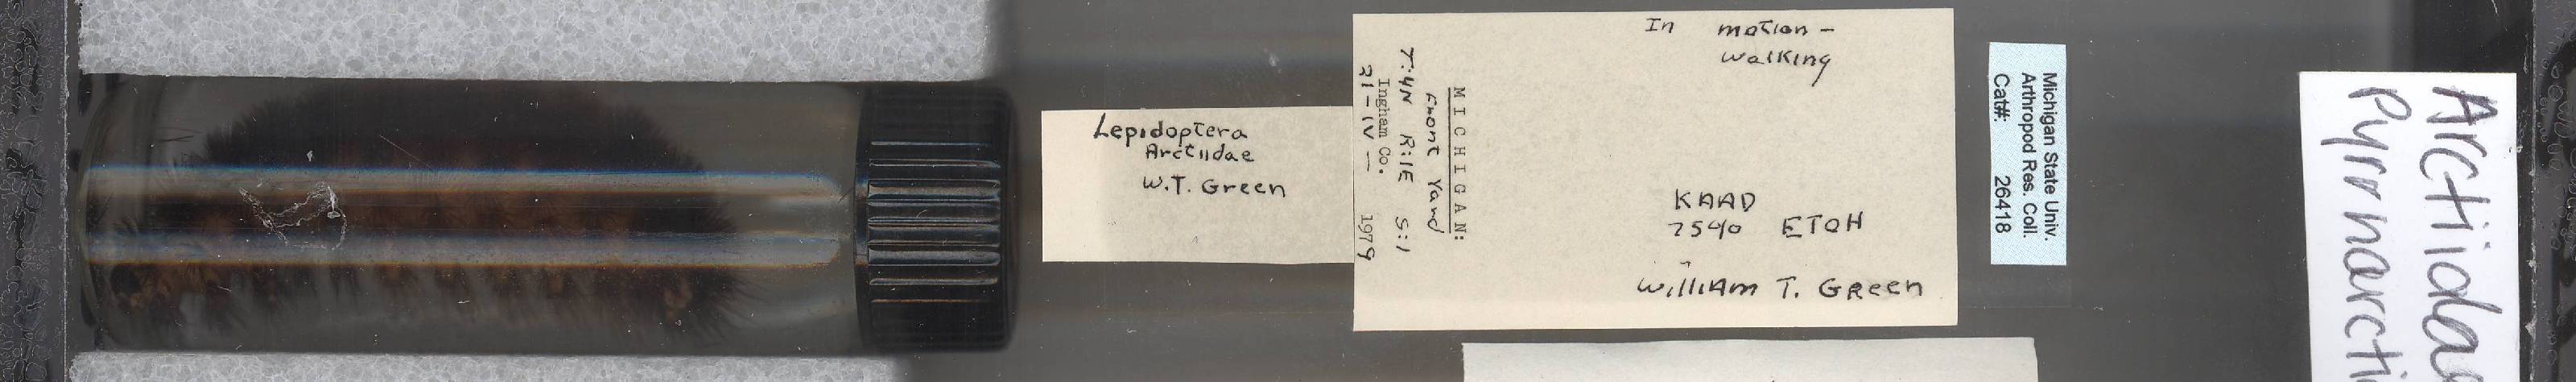 Lepidoptera
Arctiidae
W.T. Green
MICHIGAN:
Front Yard
T:4N R:1E S:1
Ingham Co.
21-IV- 1979
In motion -
walking
KAAD
75% ETOH
William T. Green
Michigan State Univ.
Arthropod Res. Coll.
Cat#: 26418
Arctiidae
Pyrrharcti